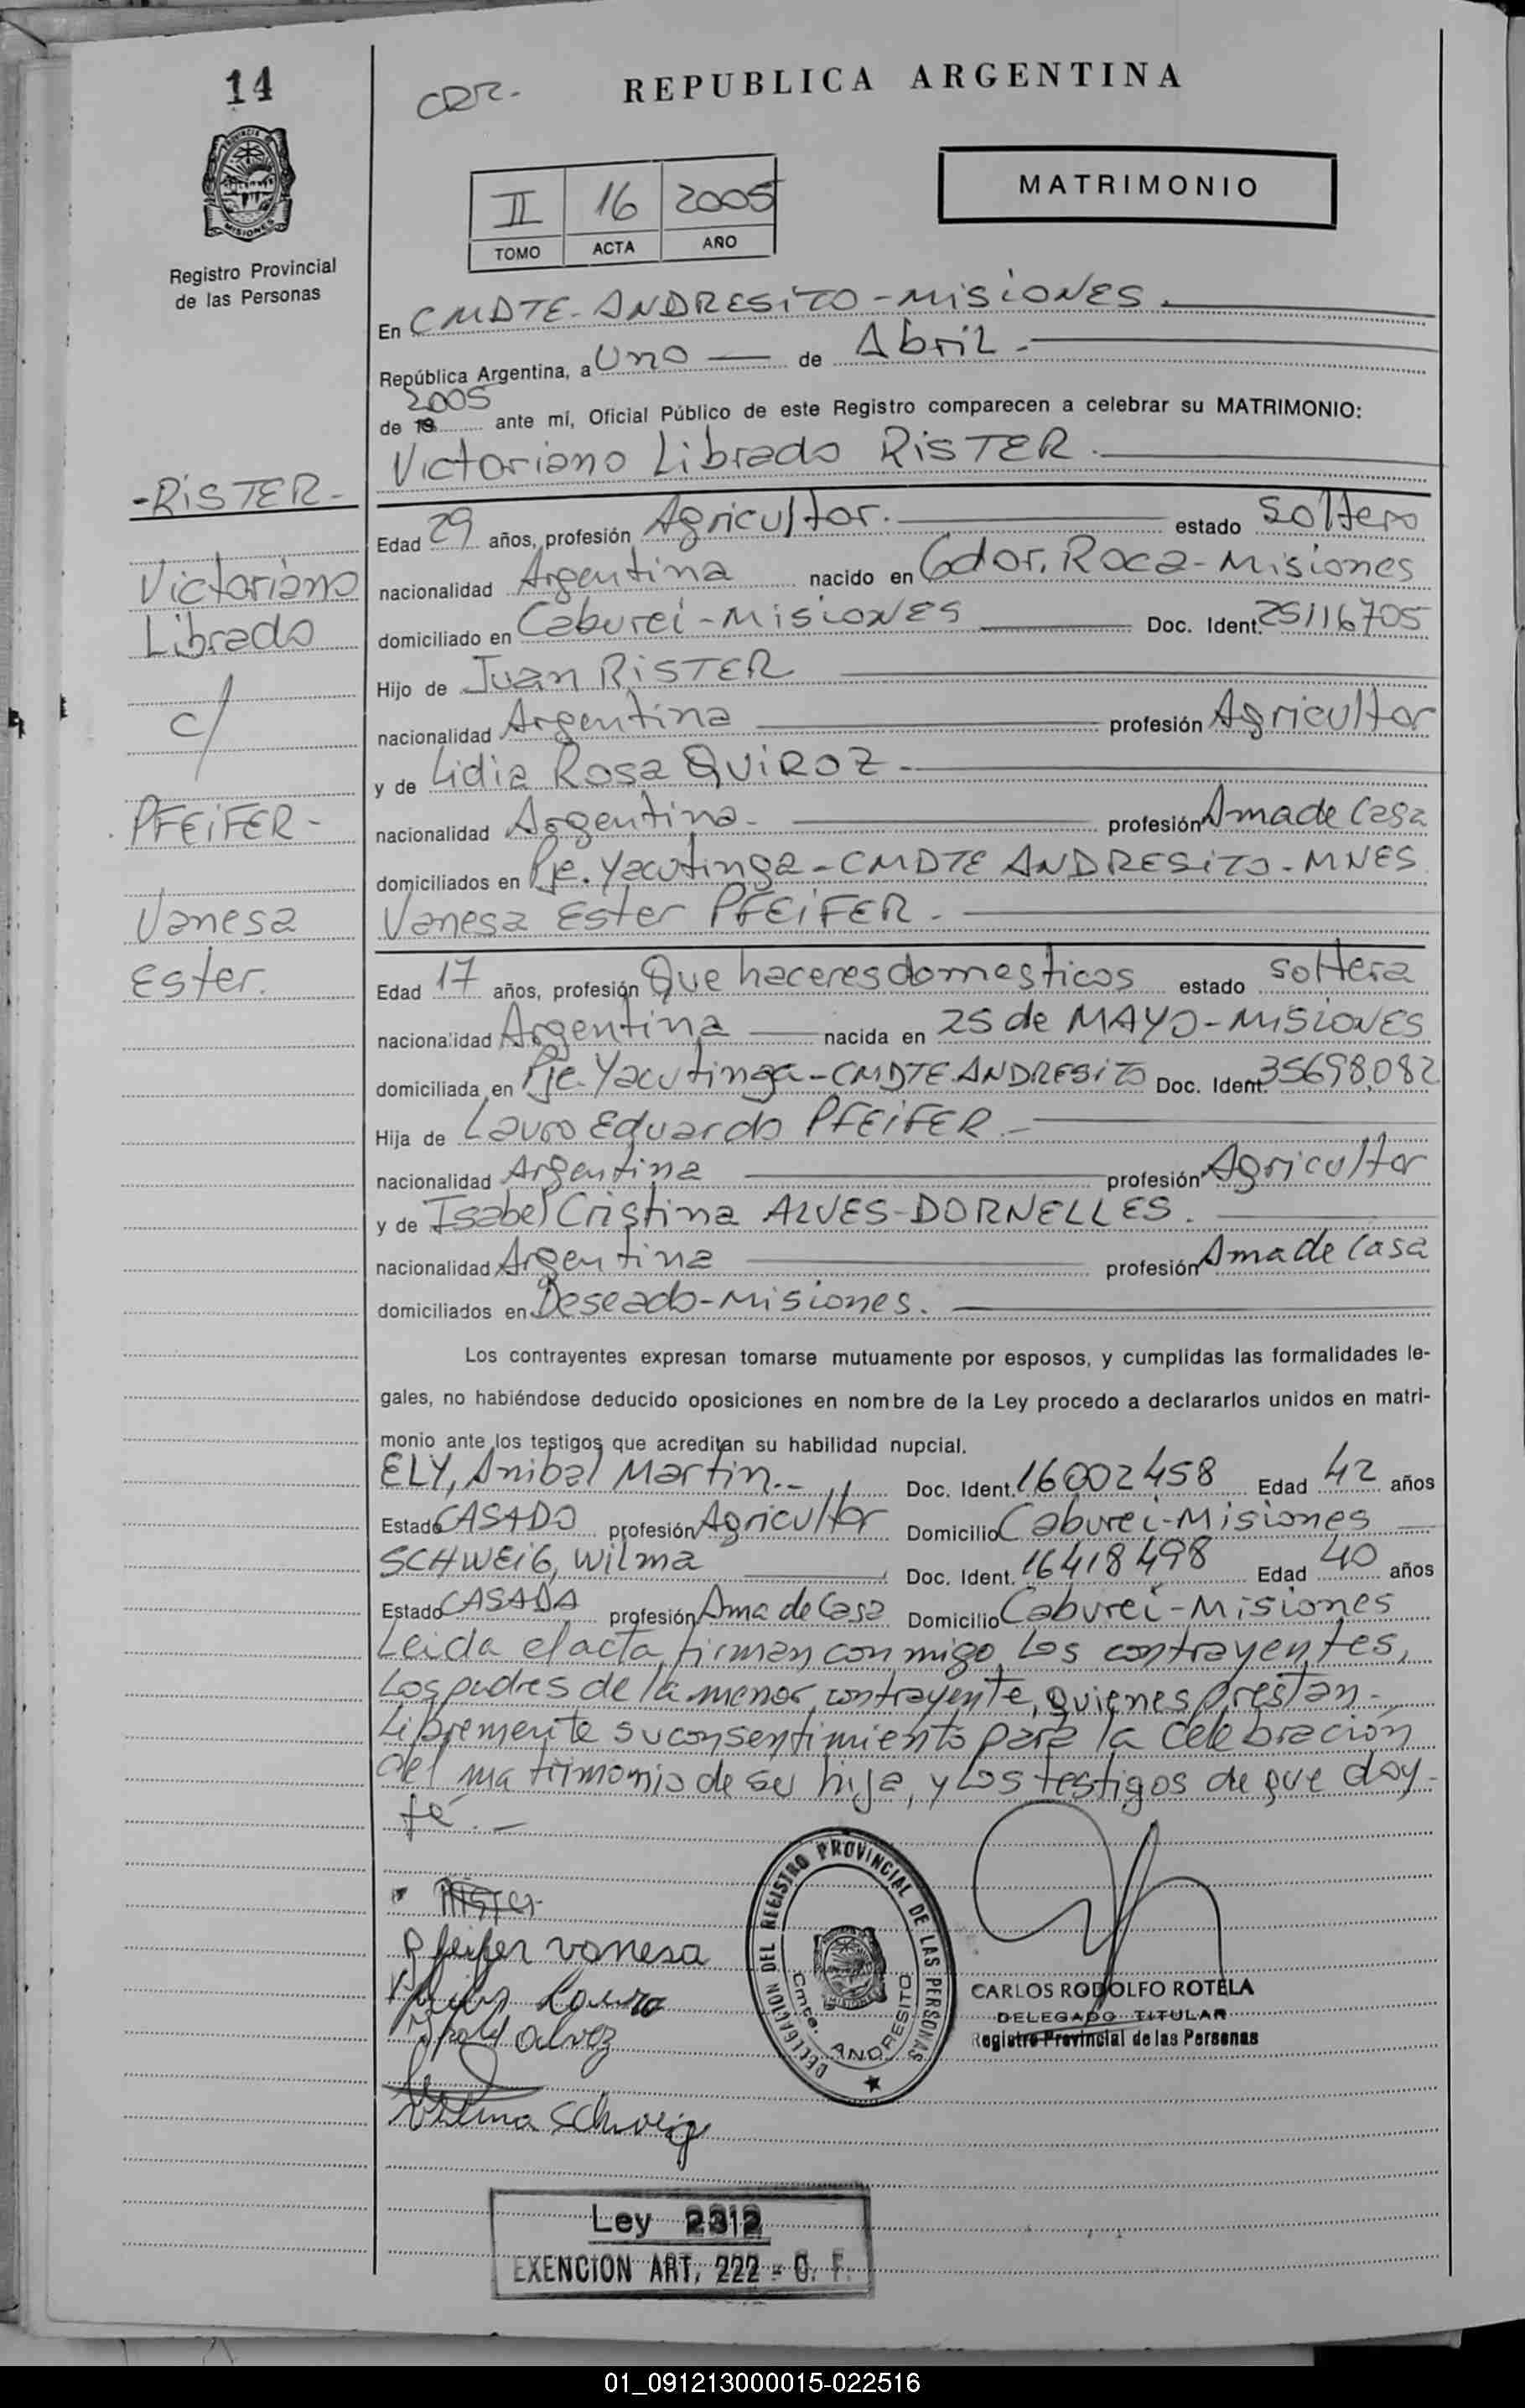 14
CRR-
REPUBLICA ARGENTINA
PROVINCIA
MISIONES
Registro Provincial
de las Personas
II 16 2005
TOMO ACTA AÑO
MATRIMONIO
En CMDTE-ANDRESITO-MISIONES.
República Argentina, a Uno de Abril.-
2005
de 19 ante mí, Oficial Público de este Registro comparecen a celebrar su MATRIMONIO:
Victoriano Librado RISTER.
-RISTER-
Victoriano
Librado
c/
PFEIFER-
Vanesa
Ester.
Edad 29 años, profesión Agricultor. estado soltero
nacionalidad Argentina nacido en Gdor. Roca-Misiones
domiciliado en Caburei-MISIONES Doc. Ident. 25116705
Hijo de Juan RISTER
nacionalidad Argentina profesión Agricultor
y de Lidia Rosa QUIROZ-
nacionalidad Argentina- profesión Ama de Casa
domiciliados en Pje. Yacutinga-CMDTE ANDRESITO-MNES
Vanesa Ester PFEIFER.
Edad 17 años, profesión Que haceres domesticos estado soltera
nacionalidad Argentina nacida en 25 de MAYO-MISIONES
domiciliada en Pje. Yacutinga-CMDTE.ANDRESITO Doc. Ident. 35698.082
Hija de Lauro Eduardo PFEIFER.-
nacionalidad Argentina profesión Agricultor
y de Isabel Cristina ALVES-DORNELLES.
nacionalidad Argentina profesión Ama de Casa
domiciliados en Deseado-Misiones.
Los contrayentes expresan tomarse mutuamente por esposos, y cumplidas las formalidades le-
gales, no habiéndose deducido oposiciones en nombre de la Ley procedo a declararlos unidos en matri-
monio ante los testigos que acreditan su habilidad nupcial.
ELY, Anibal Martin.- Doc. Ident. 16002458 Edad 42 años
Estado CASADO profesión Agricultor Domicilio Caburei-Misiones
SCHWEIG, Wilma Doc. Ident. 16418498 Edad 40 años
Estado CASADA profesión Ama de Casa Domicilio Caburei-Misiones
Leida el acta, firman conmigo, los contrayentes,
Los padres de la menor contrayente, quienes prestan-
Libremente su consentimiento para la celebración
del matrimonio de su hija, y los testigos de que doy-
fé.-
Pfeifer vanesa
Lauro
alvez
Wilma Schweig
DELEGACION DEL REGISTRO PROVINCIAL DE LAS PERSONAS
Cmte. ANDRESITO
CARLOS RODOLFO ROTELA
DELEGADO TITULAR
Registro Provincial de las Personas
Ley 2312
EXENCION ART. 222 - C. F.
01_091213000015-022516